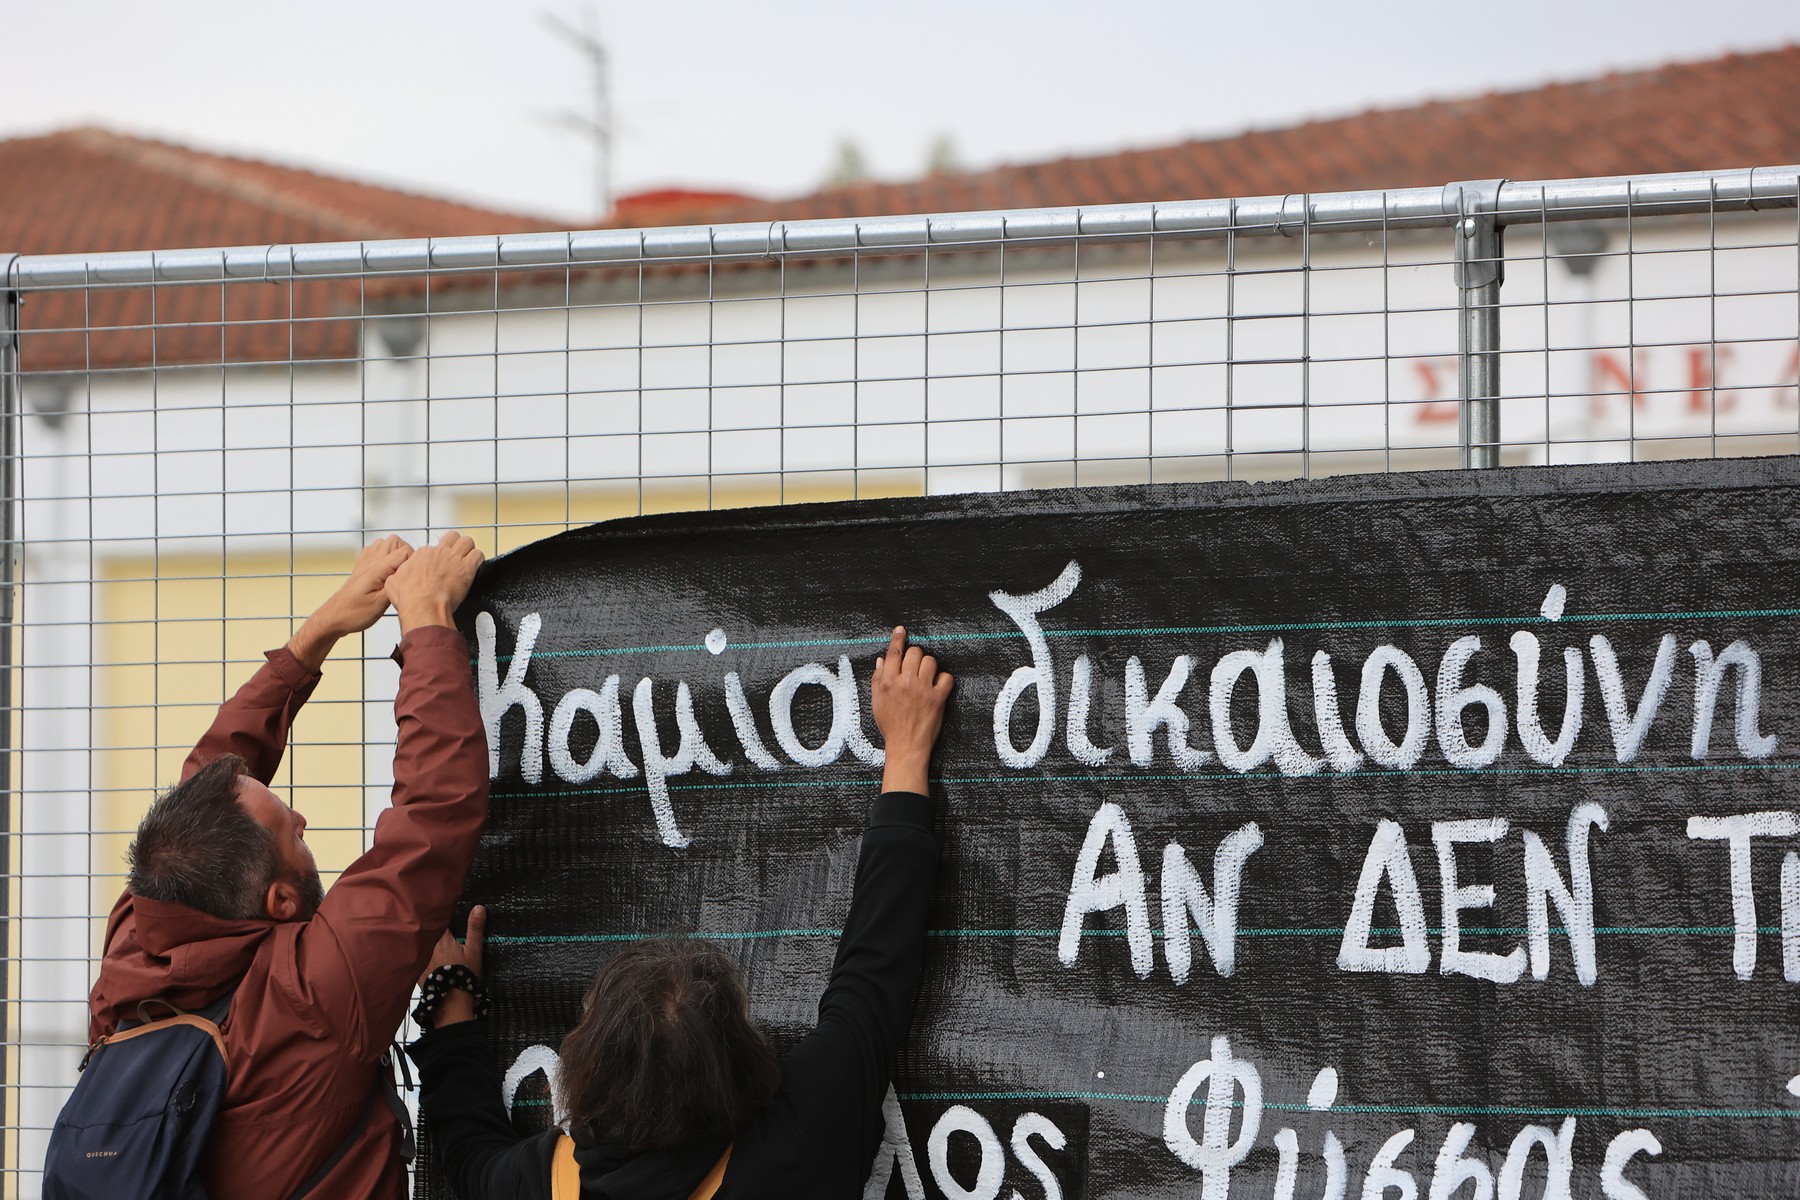 Σ ΝΕΔ
Καμία δικαιοσύνη
ΑΝ ΔΕΝ
Φύσσας
QUECHUA